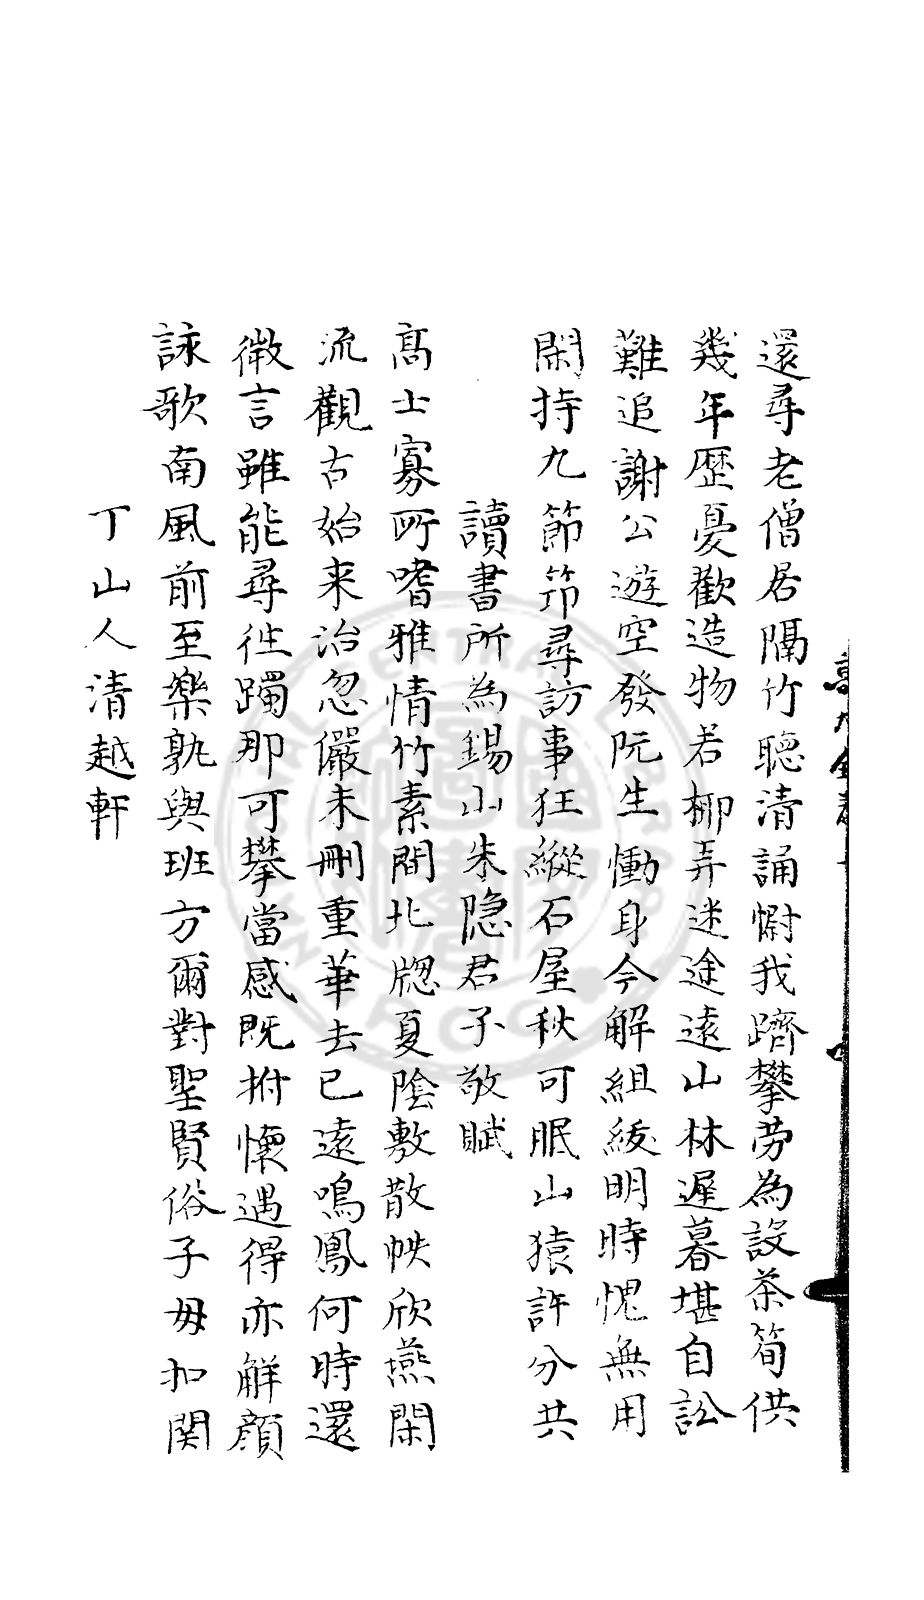 還尋老僧居隔竹聽清誦慰我躋攀勞為設茶筍供
幾年歷憂歡造物若柳弄迷途遠山林遲暮堪自訟
難追謝公遊空發阮生慟身今解組綬明時愧無用
閑持九節笻尋訪事狂縱石屋秋可眠山猿許分共
讀書所為錫山朱隐君子敬賦
髙士寡所嗜雅情竹素間北牎夏陰敷散帙欣燕閑
流觀古始来治忽儼未刪重華去已遠鳴鳳何時還
微言雖能尋往躅那可攀當感既拊懷遇得亦解顔
詠歌南風前至樂孰與班方爾對聖賢俗子毋扣関
丁山人清越軒